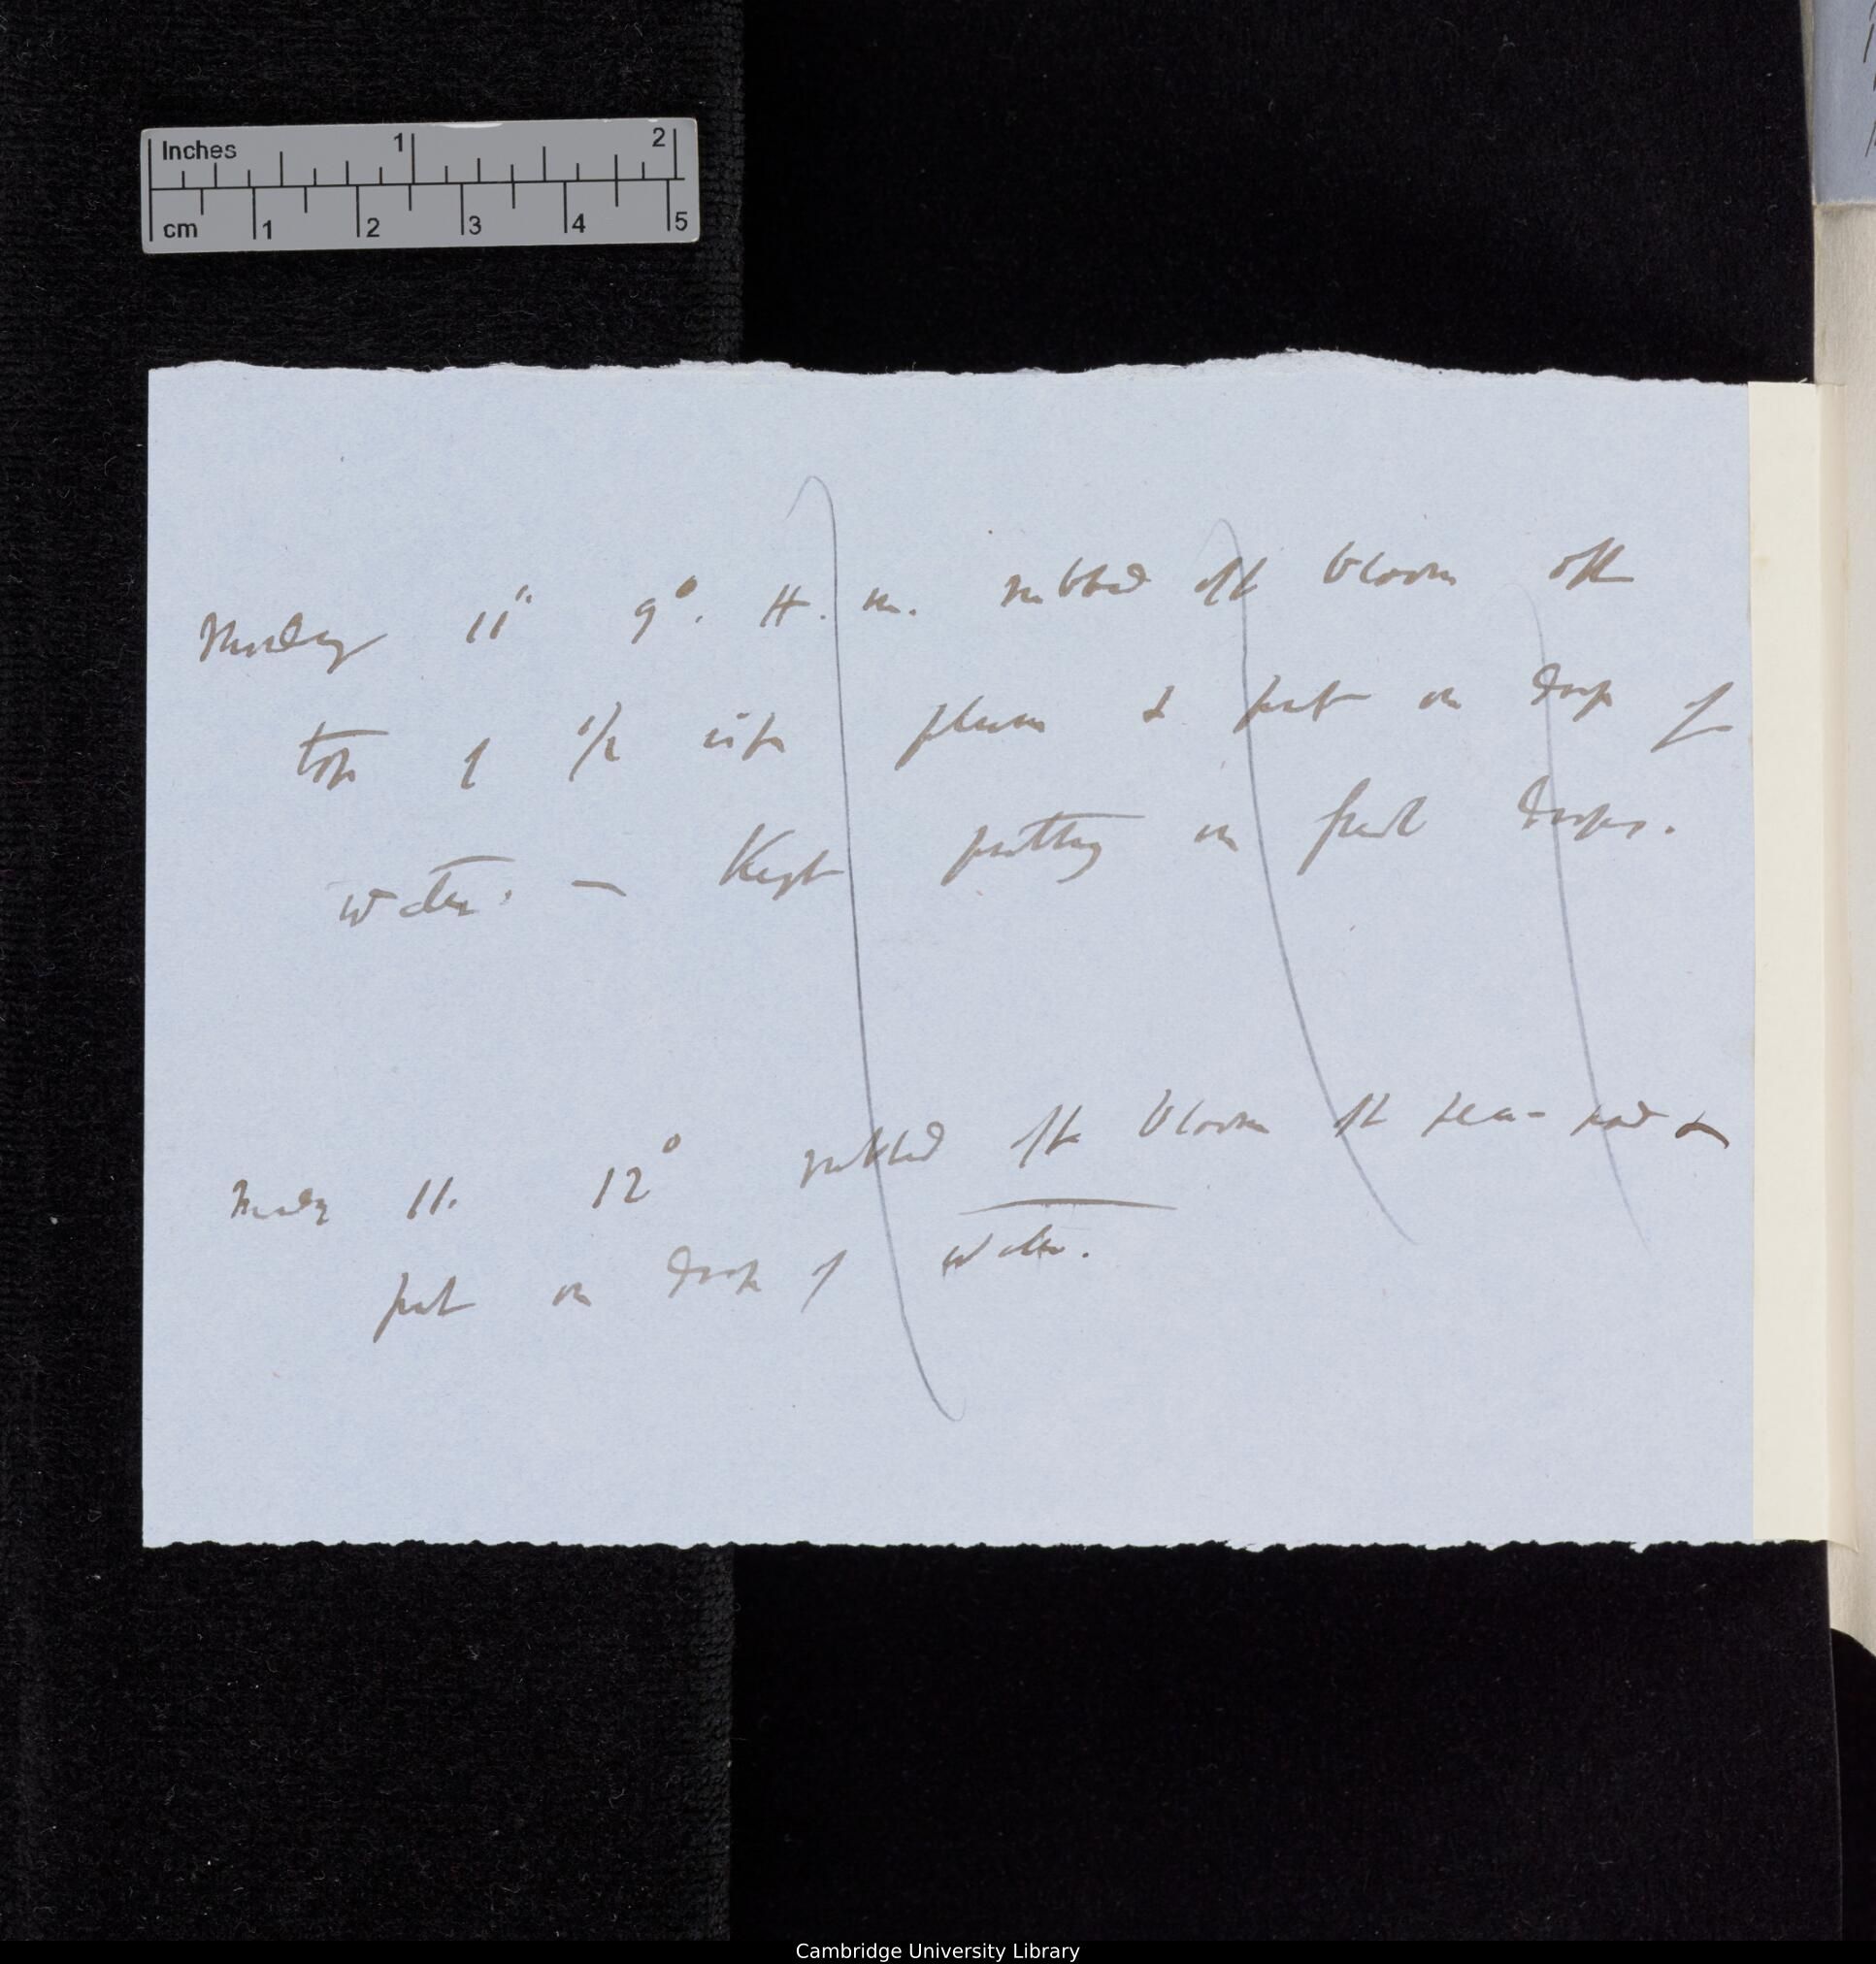 Inches 1 2
cm 1 2 3 4 5
Monday 11th 9°. H. m. rubbed off bloom off
top of 1/2 ripe plum & put on drop of
water. — Kept putting on fresh drops.
Monday 11. 12° rubbed off bloom off pea-pod &
put on drop of water.
Cambridge University Library